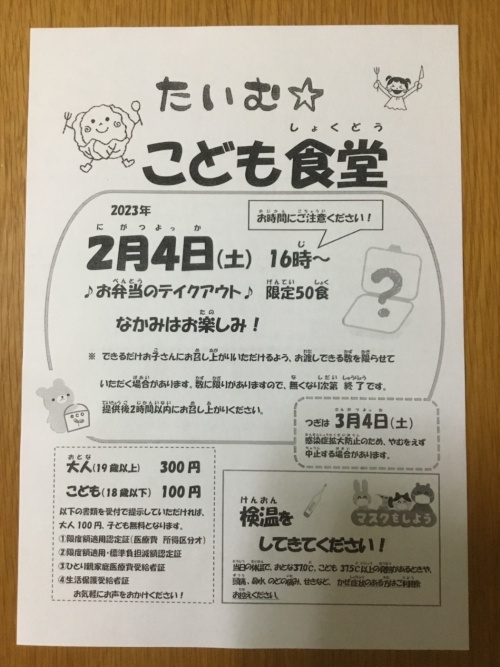 たいむ☆
しょくどう
こども食堂
2023年
おじかん ちゅうい
お時間にご注意ください！
にがつよっか
2月4日(土) 16時～
♪お弁当のテイクアウト♪ 限定50食
なかみはお楽しみ！
※ できるだけお子さんにお召し上がりいただけるよう、お渡しできる数を限らせて
いただく場合があります。数に限りがありますので、無くなり次第 終了です。
提供後2時間以内にお召し上がりください。
eco
つぎは 3月4日(土)
感染症拡大防止のため、やむをえず
中止する場合があります。
おとな
大人(19歳以上) 300円
こども(18歳以下) 100円
以下の書類を受付で提示していただければ、
大人100円、子ども無料となります。
①限度額適用認定証(医療費 所得区分オ)
②限度額適用・標準負担減額認定証
③ひとり親家庭医療費受給者証
④生活保護受給者証
お気軽にお声をおかけください！
けんおん
検温を
してきてください！
マスクをしよう
当日の体温で、おとな37.0℃、こども 37.5℃以上の発熱があるときや、
頭痛、鼻水、のどの痛み、せきなど、かぜ症状のある方はご利用を
お控えください。